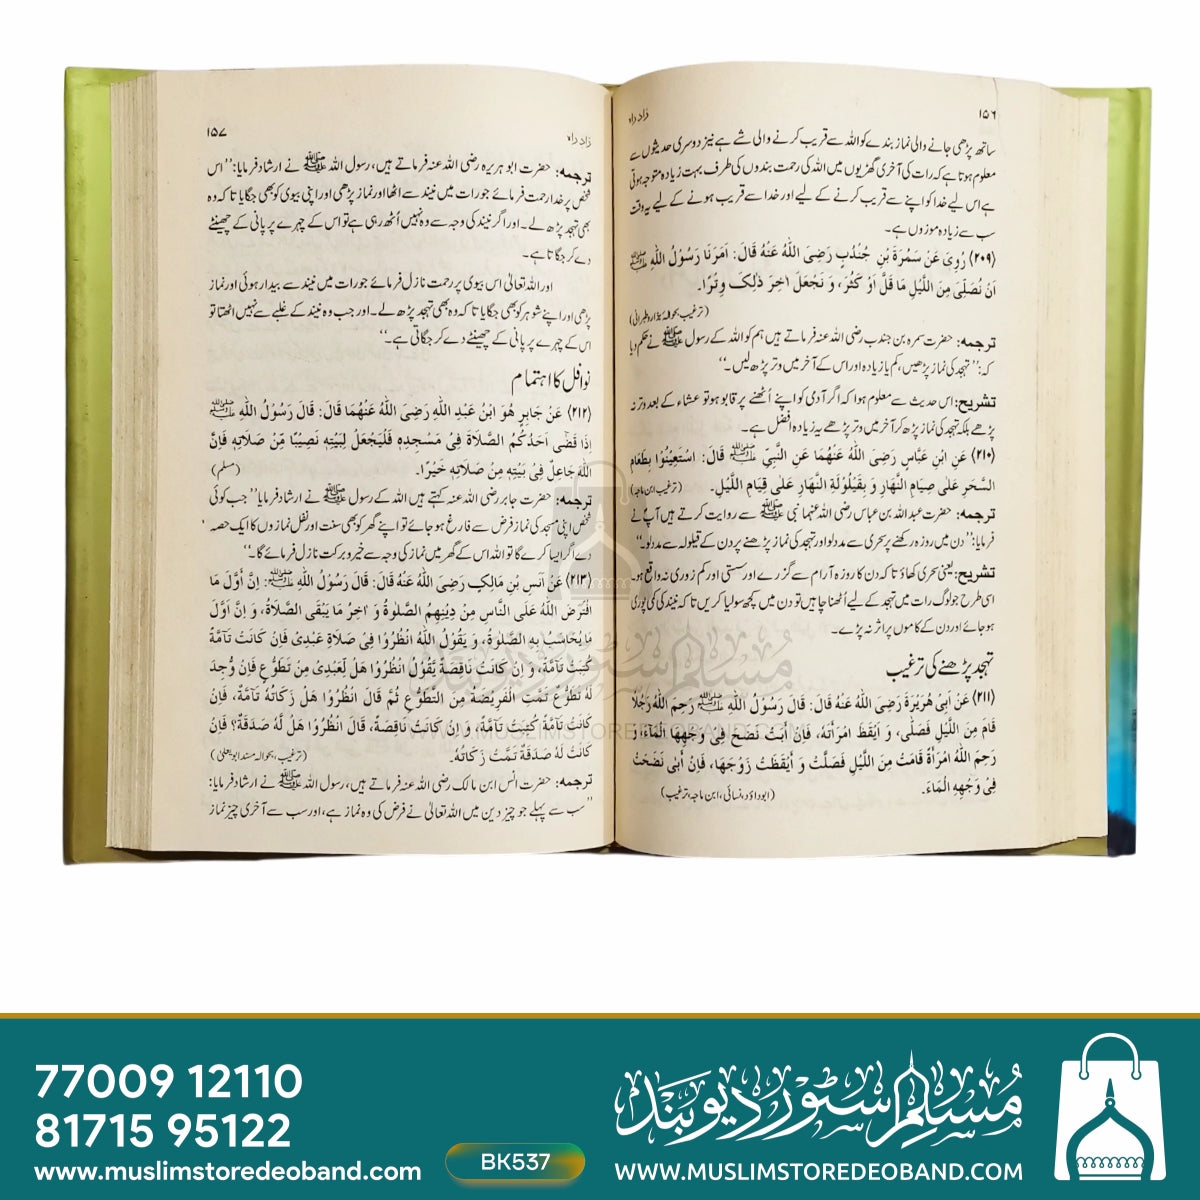 ۱۵۶
زاد راہ
ساتھ پڑھی جانے والی نماز بندے کو اللہ سے قریب کرنے والی شے ہے نیز دوسری حدیثوں سے
معلوم ہوتا ہے کہ رات کی آخری گھڑیوں میں اللہ کی رحمت بندوں کی طرف بہت زیادہ متوجہ ہوتی
ہے اس لیے خدا کو اپنے سے قریب کرنے کے لیے اور خدا سے قریب ہونے کے لیے یہ وقت
سب سے زیادہ موزوں ہے۔
(۲۰۹) رُوِیَ عَنْ سَمُرَةَ بْنِ جُنْدُبٍ رَضِیَ اللّٰهُ عَنْهُ قَالَ: اَمَرَنَا رَسُوْلُ اللّٰهِ ﷺ
اَنْ نُصَلِّیَ مِنَ اللَّیْلِ مَا قَلَّ اَوْ کَثُرَ، وَ نَجْعَلَ اٰخِرَ ذٰلِکَ وِتْرًا۔
(ترغیب بحوالہ بزار و طبرانی)
ترجمہ: حضرت سمرہ بن جندب رضی اللہ عنہ فرماتے ہیں ہم کو اللہ کے رسول ﷺ نے حکم دیا
کہ: ”تہجد کی نماز پڑھیں، کم یا زیادہ اور اس کے آخر میں وتر پڑھ لیں۔“
تشریح: اس حدیث سے معلوم ہوا کہ اگر آدمی کو اپنے اُٹھنے پر قابو ہو تو عشاء کے بعد وتر نہ
پڑھے بلکہ تہجد کی نماز پڑھ کر آخر میں وتر پڑھے یہ زیادہ افضل ہے۔
(۲۱۰) عَنِ ابْنِ عَبَّاسٍ رَضِیَ اللّٰهُ عَنْهُمَا عَنِ النَّبِیِّ ﷺ قَالَ: اسْتَعِیْنُوْا بِطَعَامِ
السَّحَرِ عَلٰی صِیَامِ النَّهَارِ وَ بِقَیْلُوْلَةِ النَّهَارِ عَلٰی قِیَامِ اللَّیْلِ۔ (ترغیب ابن ماجہ)
ترجمہ: حضرت عبداللہ بن عباس رضی اللہ عنہما نبی ﷺ سے روایت کرتے ہیں آپ نے
فرمایا: ”دن میں روزہ رکھنے پر سحری سے مدد لو اور تہجد کی نماز پڑھنے پر دن کے قیلولہ سے مدد لو۔“
تشریح: یعنی سحری کھاؤ تاکہ دن کا روزہ آرام سے گزرے اور سستی اور کم زوری نہ واقع ہو۔
اسی طرح جو لوگ رات میں تہجد کے لیے اُٹھنا چاہیں تو دن میں کچھ سو لیا کریں تاکہ نیند کی کمی پوری
ہو جائے اور دن کے کاموں پر اثر نہ پڑے۔
تہجد پڑھنے کی ترغیب
(۲۱۱) عَنْ اَبِیْ هُرَیْرَةَ رَضِیَ اللّٰهُ عَنْهُ قَالَ: قَالَ رَسُوْلُ اللّٰهِ ﷺ رَحِمَ اللّٰهُ رَجُلًا
قَامَ مِنَ اللَّیْلِ فَصَلّٰی، وَ اَیْقَظَ امْرَاَتَهُ، فَاِنْ اَبَتْ نَضَحَ فِیْ وَجْهِهَا الْمَاءَ، وَ
رَحِمَ اللّٰهُ امْرَاَةً قَامَتْ مِنَ اللَّیْلِ فَصَلَّتْ وَ اَیْقَظَتْ زَوْجَهَا، فَاِنْ اَبٰی نَضَحَتْ
فِیْ وَجْهِهِ الْمَاءَ۔
(ابو داؤد، نسائی، ابن ماجہ، ترغیب)
زاد راہ
۱۵۷
ترجمہ: حضرت ابو ہریرہ رضی اللہ عنہ فرماتے ہیں، رسول اللہ ﷺ نے ارشاد فرمایا: ”اس
شخص پر خدا رحمت فرمائے جو رات میں نیند سے اٹھا اور نماز پڑھی اور اپنی بیوی کو بھی جگایا تاکہ وہ
بھی تہجد پڑھ لے۔ اور اگر نیند کی وجہ سے وہ نہیں اُٹھ رہی ہے تو اس کے چہرے پر پانی کے چھینٹے
دے کر جگاتا ہے۔
اور اللہ تعالیٰ اس بیوی پر رحمت نازل فرمائے جو رات میں نیند سے بیدار ہوئی اور نماز
پڑھی اور اپنے شوہر کو بھی جگایا تاکہ وہ بھی تہجد پڑھ لے۔ اور جب وہ نیند کے غلبے سے نہیں اٹھتا تو
اس کے چہرے پر پانی کے چھینٹے دے کر جگاتی ہے۔“
نوافل کا اہتمام
(۲۱۲) عَنْ جَابِرٍ هُوَ ابْنُ عَبْدِ اللّٰهِ رَضِیَ اللّٰهُ عَنْهُمَا قَالَ: قَالَ رَسُوْلُ اللّٰهِ ﷺ
اِذَا قَضٰی اَحَدُکُمُ الصَّلَاةَ فِیْ مَسْجِدِهٖ فَلْیَجْعَلْ لِبَیْتِهٖ نَصِیْبًا مِّنْ صَلَاتِهٖ فَاِنَّ
اللّٰهَ جَاعِلٌ فِیْ بَیْتِهٖ مِنْ صَلَاتِهٖ خَیْرًا۔ (مسلم)
ترجمہ: حضرت جابر رضی اللہ عنہ کہتے ہیں اللہ کے رسول ﷺ نے ارشاد فرمایا ”جب کوئی
شخص اپنی مسجد کی نماز فرض سے فارغ ہو جائے تو اپنے گھر کو بھی سنت اور نفل نمازوں کا ایک حصہ
دے اگر ایسا کرے گا تو اللہ اس کے گھر میں نماز کی وجہ سے خیر و برکت نازل فرمائے گا۔“
(۲۱۳) عَنْ اَنَسِ بْنِ مَالِکٍ رَضِیَ اللّٰهُ عَنْهُ قَالَ: قَالَ رَسُوْلُ اللّٰهِ ﷺ: اِنَّ اَوَّلَ مَا
افْتَرَضَ اللّٰهُ عَلَی النَّاسِ مِنْ دِیْنِهِمُ الصَّلٰوةُ وَ اٰخِرُ مَا یَبْقَی الصَّلَاةُ، وَ اِنَّ اَوَّلَ
مَا یُحَاسَبُ بِهِ الصَّلٰوةُ، وَ یَقُوْلُ اللّٰهُ انْظُرُوْا فِیْ صَلَاةِ عَبْدِیْ فَاِنْ کَانَتْ تَآمَّةً
کُتِبَتْ تَآمَّةً، وَ اِنْ کَانَتْ نَاقِصَةً یَّقُوْلُ انْظُرُوْا هَلْ لِّعَبْدِیْ مِنْ تَطَوُّعٍ فَاِنْ وُّجِدَ
لَهُ تَطَوُّعٌ تَمَّتِ الْفَرِیْضَةُ مِنَ التَّطَوُّعِ ثُمَّ قَالَ انْظُرُوْا هَلْ زَکَاتُهُ تَآمَّةٌ، فَاِنْ
کَانَتْ تَآمَّةً کُتِبَتْ تَآمَّةً، وَ اِنْ کَانَتْ نَاقِصَةً، قَالَ انْظُرُوْا هَلْ لَّهُ صَدَقَةٌ؟ فَاِنْ
کَانَتْ لَهُ صَدَقَةٌ تَمَّتْ زَکَاتُهُ۔ (ترغیب، بحوالہ مسند ابو یعلیٰ)
ترجمہ: حضرت انس ابن مالک رضی اللہ عنہ فرماتے ہیں، رسول اللہ ﷺ نے ارشاد فرمایا:
”سب سے پہلے جو چیز دین میں اللہ تعالیٰ نے فرض کی وہ نماز ہے، اور سب سے آخری چیز نماز
مسلم سٹور دیوبند
WWW.MUSLIMSTOREDEOBAND.COM
77009 12110
81715 95122
www.muslimstoredeoband.com
BK537
مسلم سٹور دیوبند
WWW.MUSLIMSTOREDEOBAND.COM